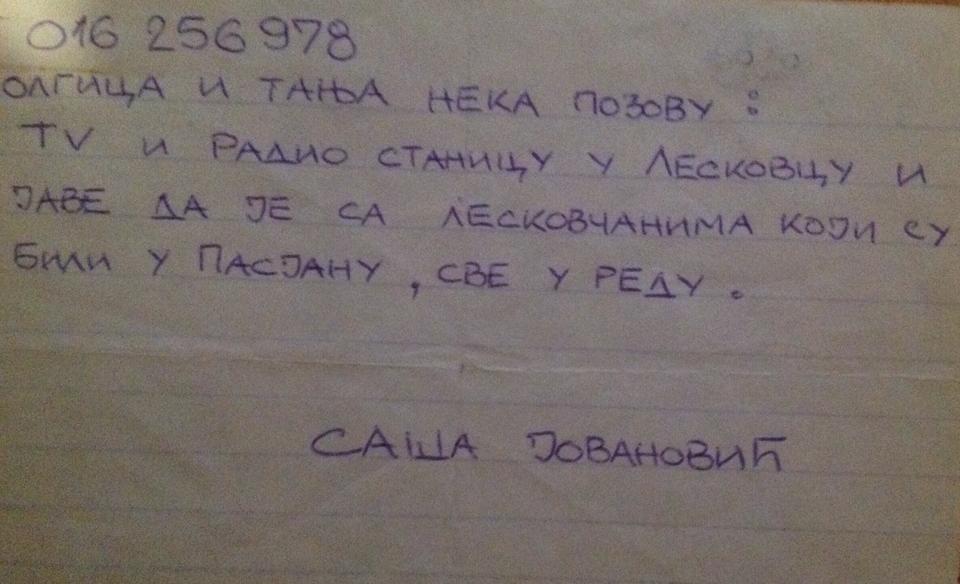 016 256 978
ОЛГИЦА И ТАЊА НЕКА ПОЗОВУ :
TV И РАДИО СТАНИЦУ У ЛЕСКОВЦУ И
ЈАВЕ ДА ЈЕ СА ЛЕСКОВЧАНИМА КОЈИ СУ
БИЛИ У ПАСЈАНУ , СВЕ У РЕДУ .
САША ЈОВАНОВИЋ